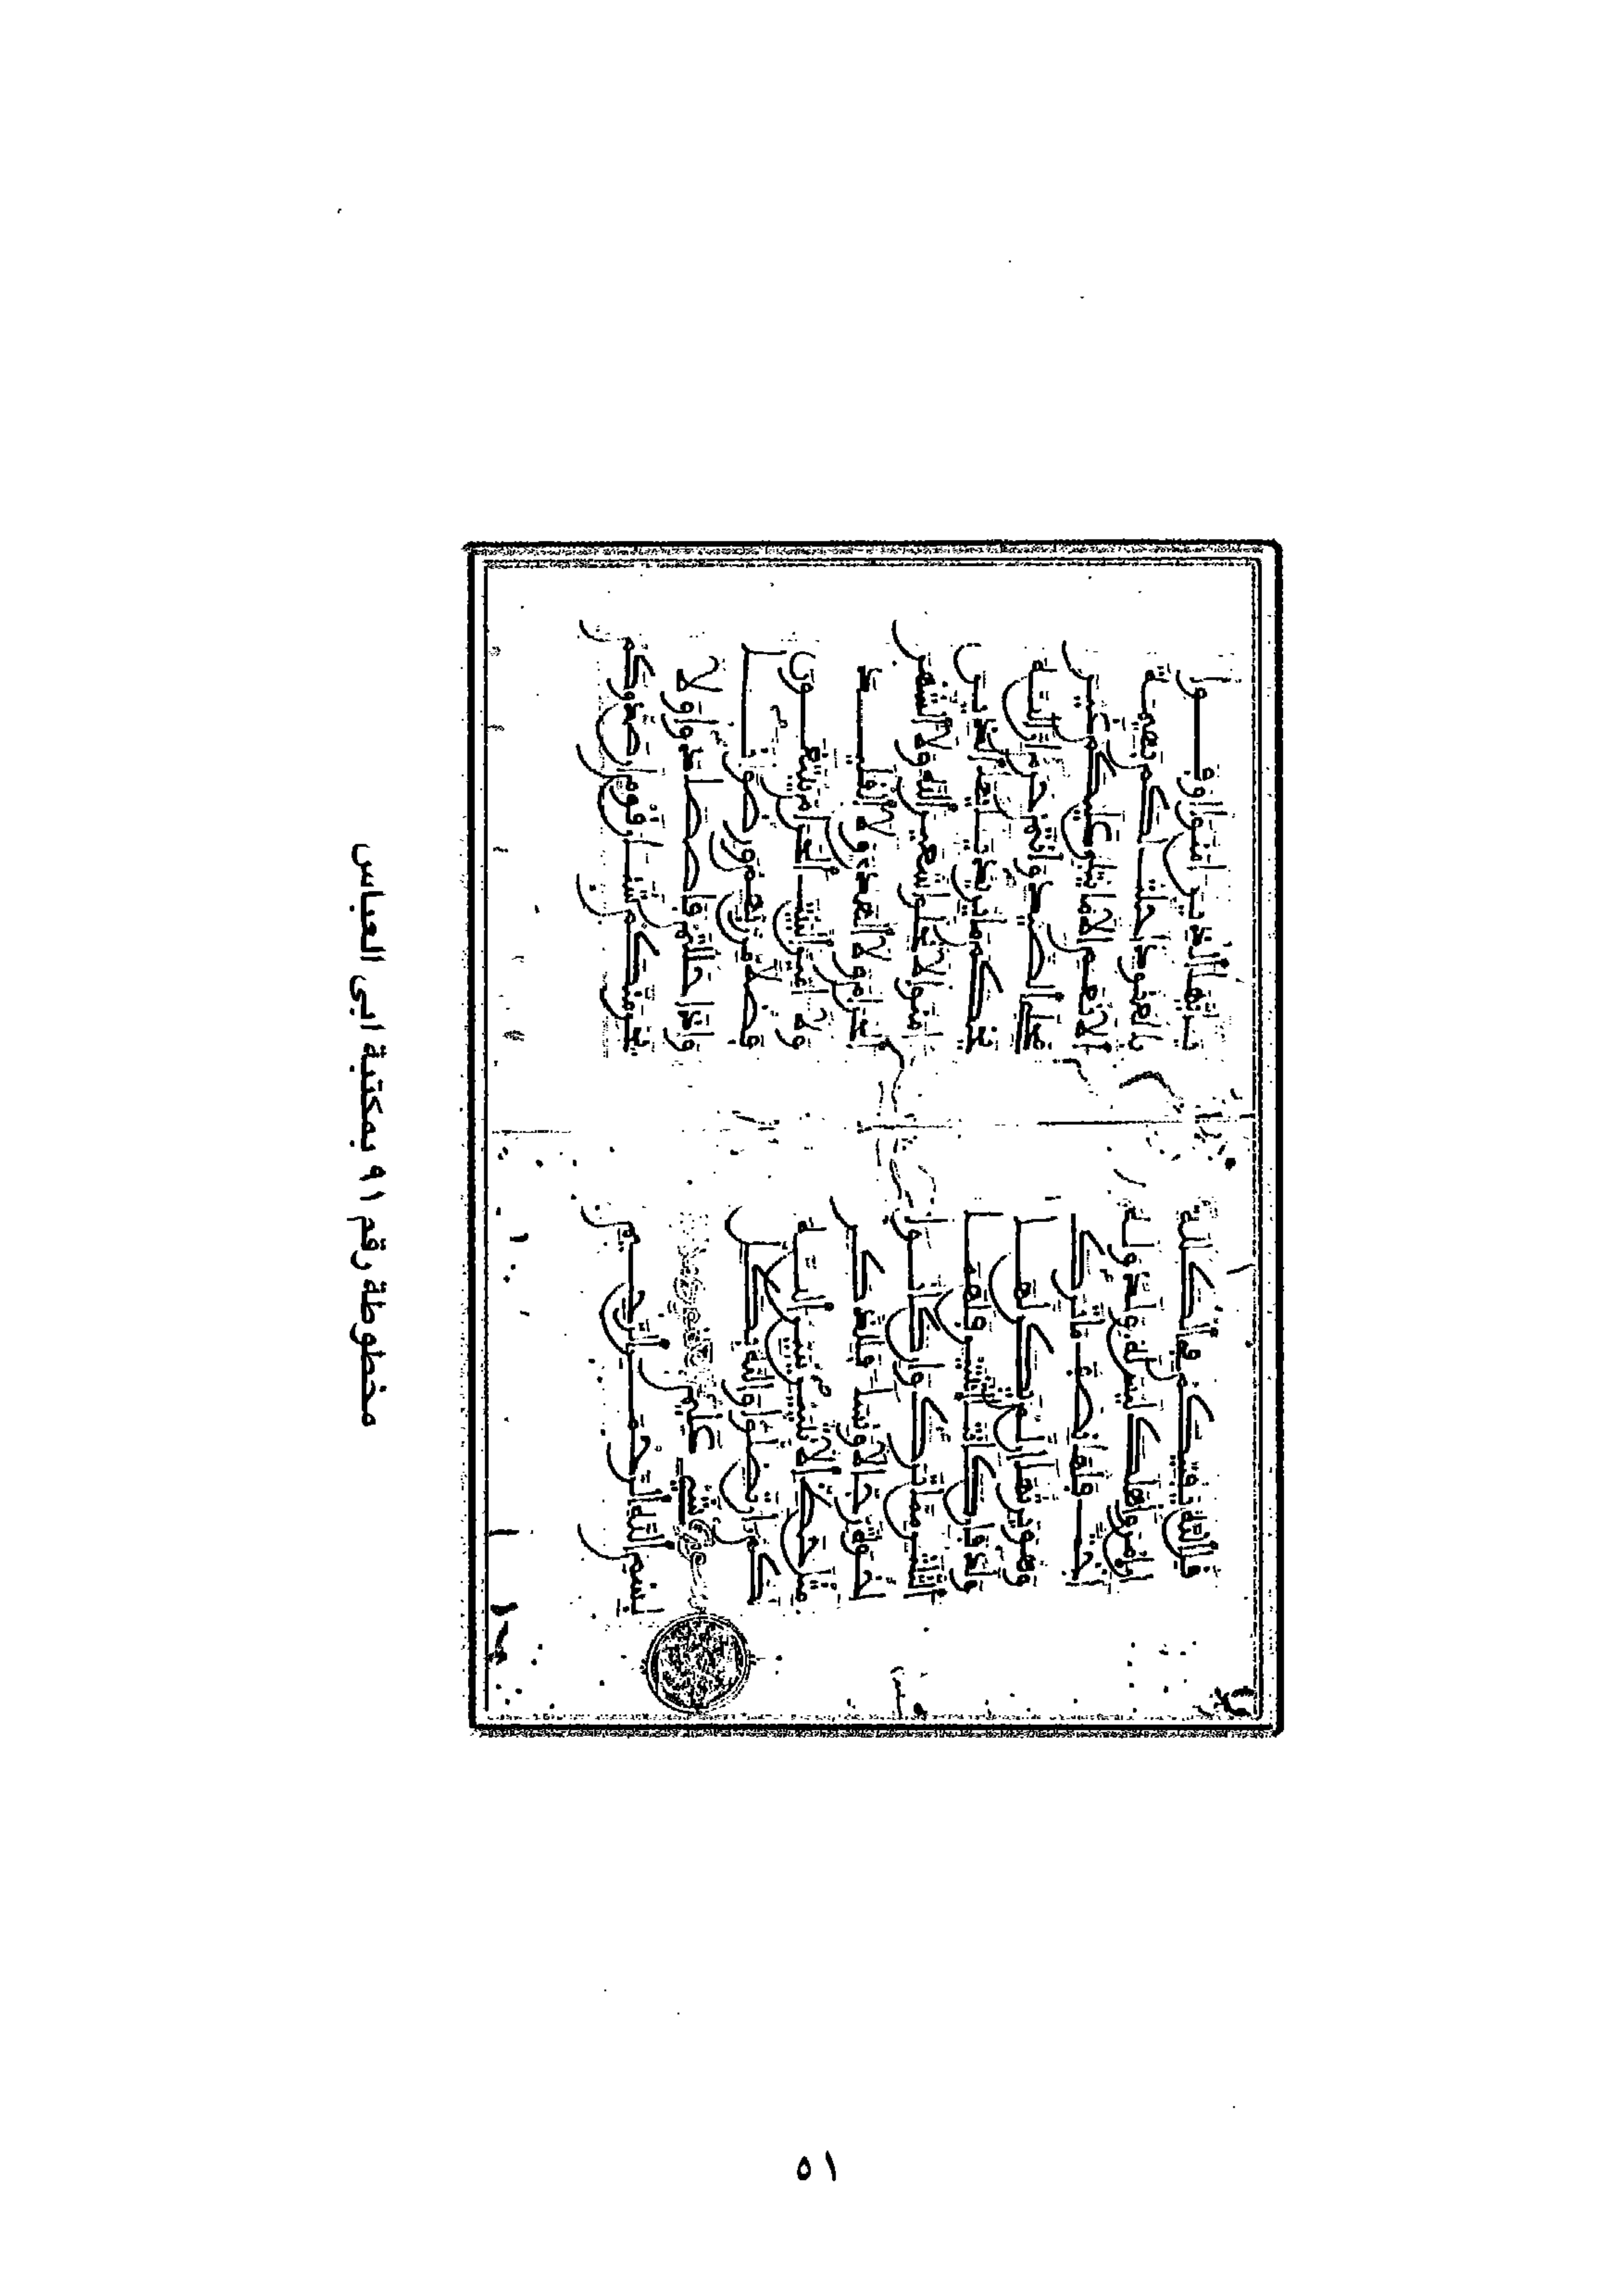 قل الله يفتيكم في الكلالة
ان امرؤا هلك ليس له ولد وله
اخت فلها نصف ما ترك
وهو يرثها ان لم يكن لها
ولد فان كانتا اثنتين فلهما
الثلثن مما ترك وان كانوا
اخوة رجالا ونساء فللذكر
مثل حظ الانثيين يبين الله
لكم ان تضلوا والله بكل
شيء عليم
بسم الله الرحمن الرحيم
يايها الذين امنوا اوفوا
بالعقود احلت لكم بهيمة
الانعم الا ما يتلى عليكم غير
محلي الصيد وانتم حرم ان الله
يحكم ما يريد يايها الذين
امنوا لا تحلوا شعئر الله ولا الشهر
الحرام ولا الهدي ولا القلئد
ولا امين البيت الحرام يبتغون
فضلا من ربهم ورضونا
واذا حللتم فاصطادوا ولا
يجرمنكم شنان قوم ان صدوكم
مخطوطة رقم ٩١ بمكتبة ابى العباس
٥١